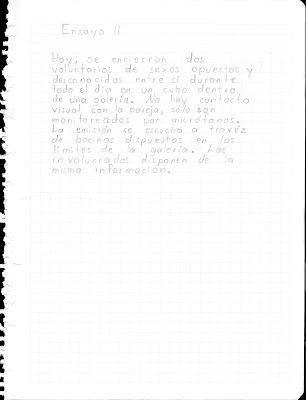 Ensayo 11
Hoy, se encierran dos
voluntarios de sexos opuestos y
desconocidos entre sí durante
todo el día en un cubo dentro
de una galería. No hay contacto
visual con la pareja, sólo son
monitoreados por micrófonos.
La emisión se escucha a travéz
de bocinas dispuestas en los
límites de la galería. Los
involucrados disponen de la
misma información.